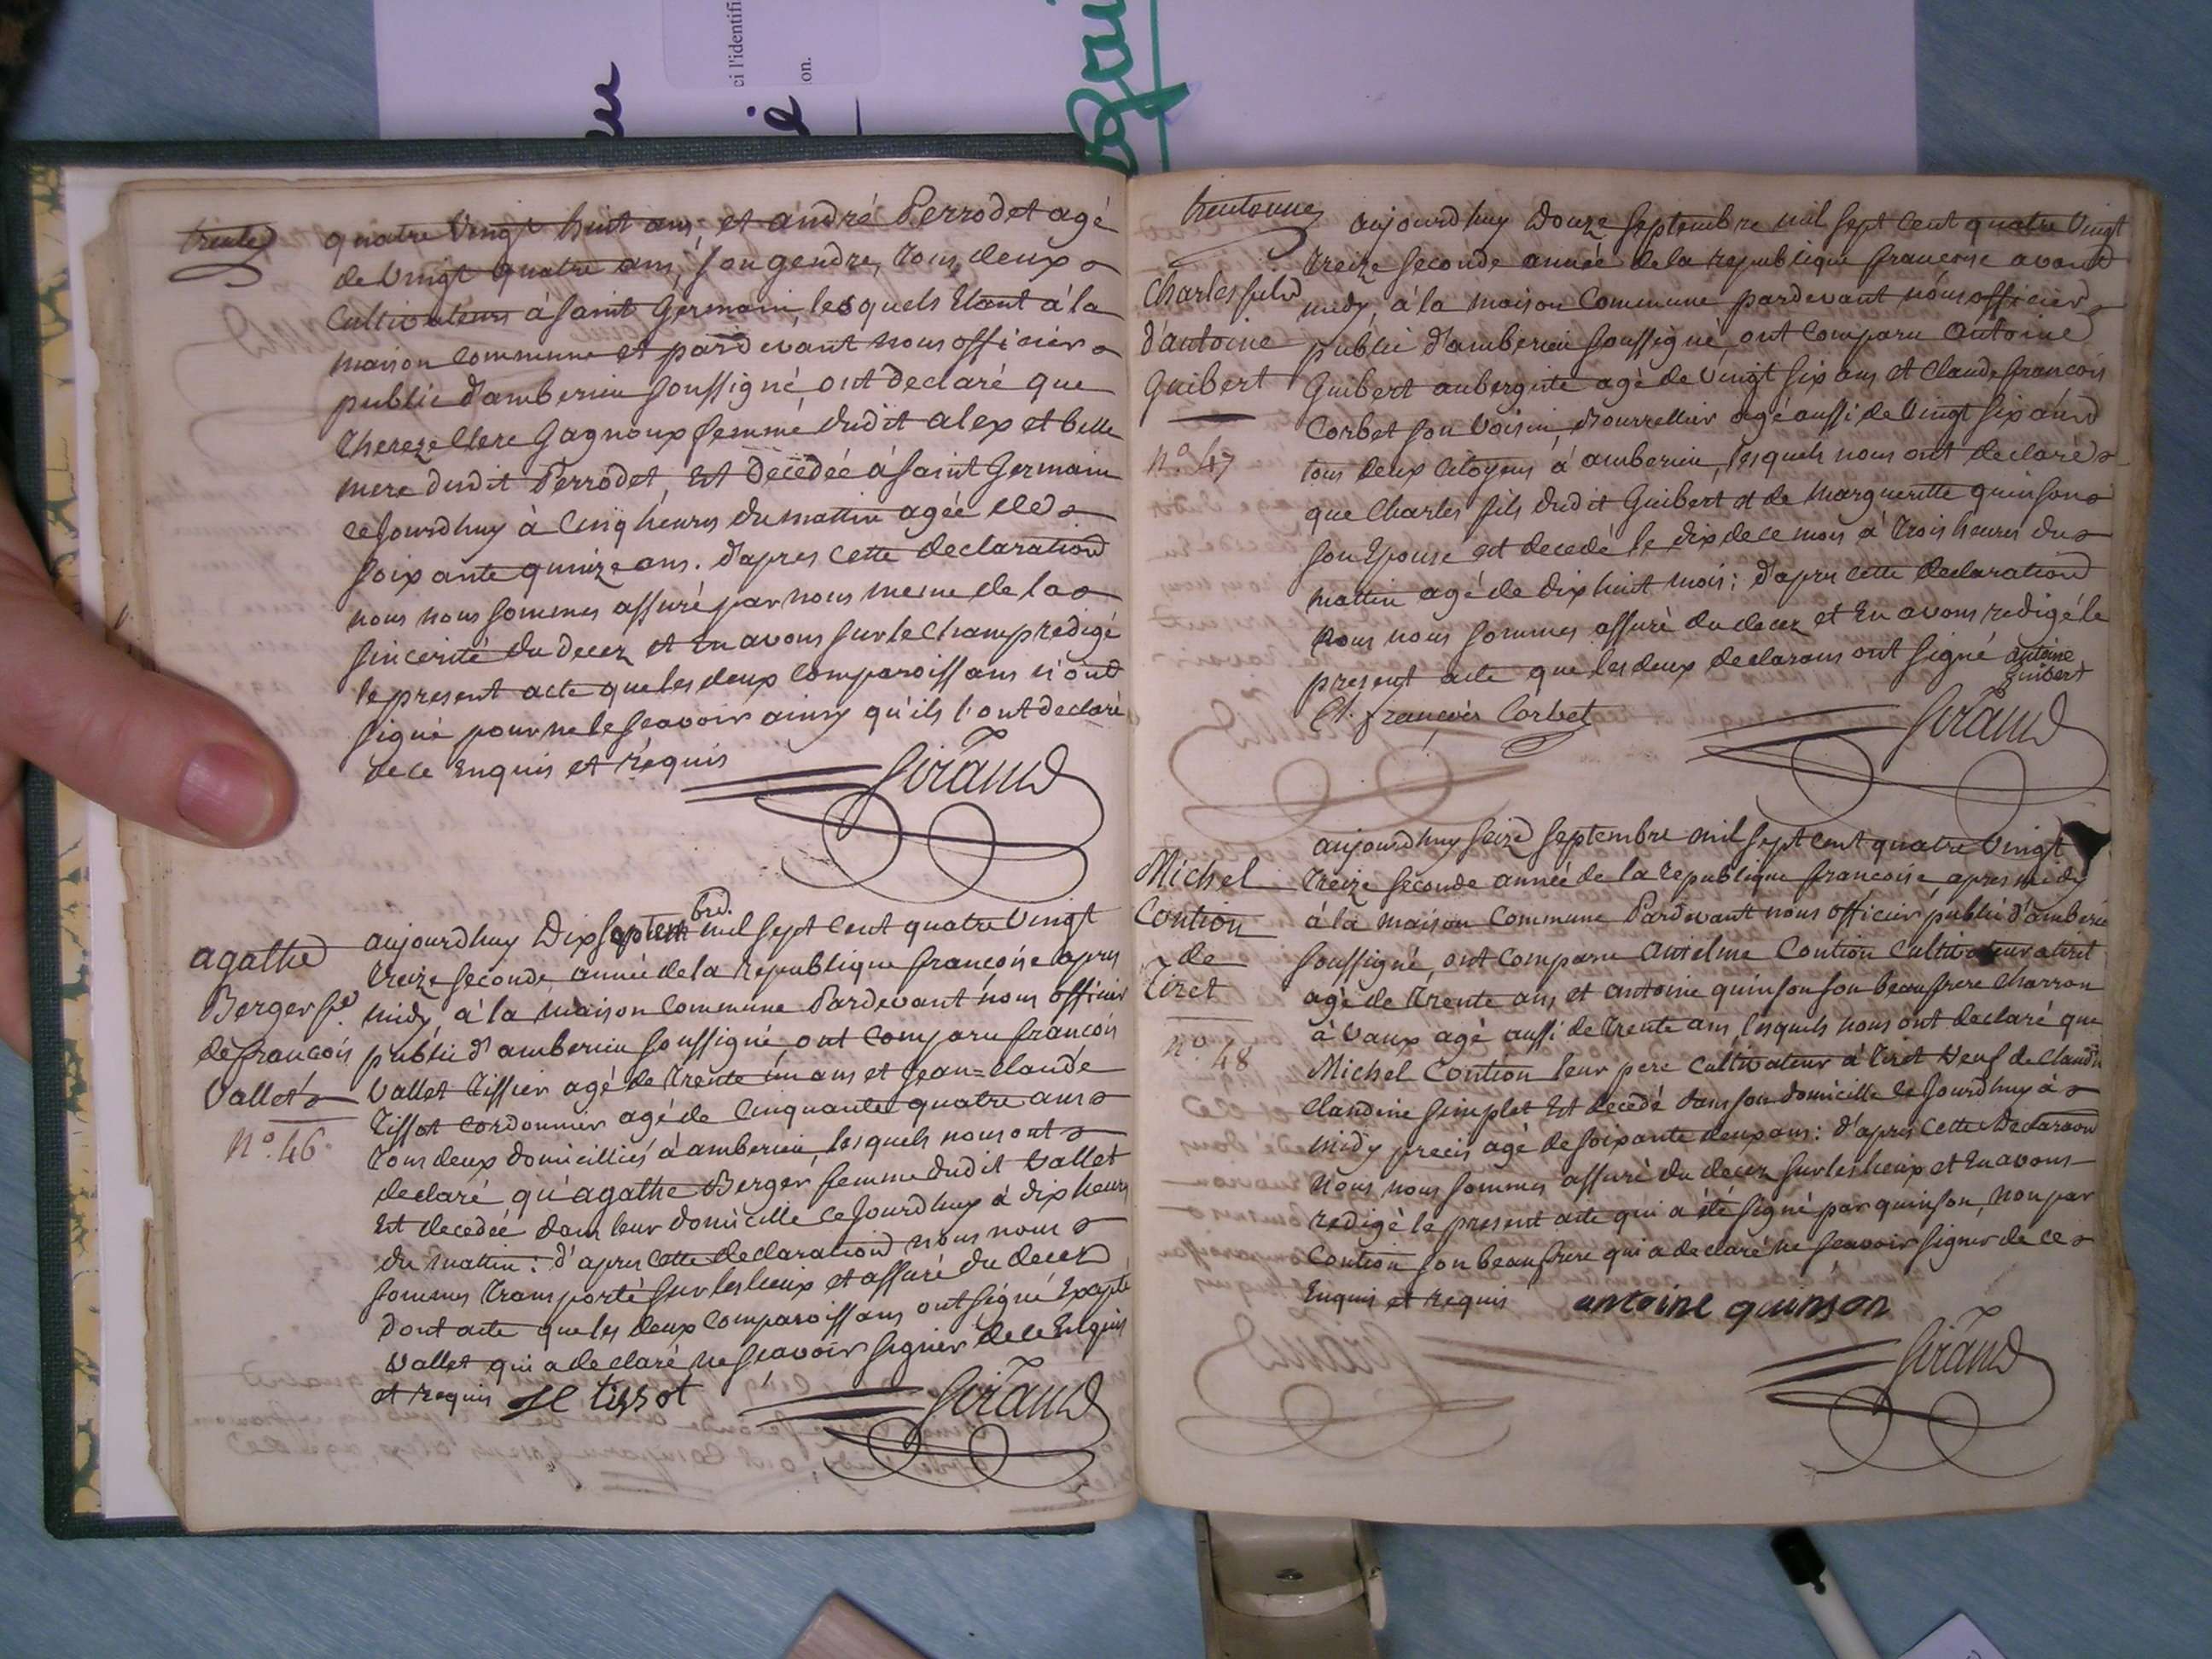 ci l'identifi
on.
trente
quatre Vingt huit ans, et andré Perrodet agé
de Vingt quatre ans, son gendre, tous deux
Cultivateurs à Saint Germain, lesquels Etant à la
maison Commune et pardevant nous officier
public d'amberieu soussigné, ont declaré que
Thereze Clere Gagnoux femme dudit alex et belle
mere dudit Perrodet, Est decedée à Saint Germain
cejourdhuy à Cinq heures du mattin agée de
soixante quinze ans. d'apres cette declaration
nous nous sommes assuré par nous meme de la
sincerité du decez et En avons sur le Champ redigé
le present acte que les deux Comparoissans n'ont
signé pour ne le sçavoir ainsy qu'ils l'ont declaré
de ce Enquis et requis
Giraud
agathe
Berger fe
de françois
Vallet
N.º 46
bre.
aujourdhuy Dix septem mil sept Cent quatre Vingt
treize seconde année de la republique françoise apres
midy, à la maison Commune Pardevant nous officier
public d'amberieu soussigné, ont Comparu françois
Vallet Tissier agé de trente un ans et Jean=Claude
Tissot Cordonnier agé de Cinquante quatre ans
tous deux domicilliés à amberieu, lesquels nous ont
declaré qu'agathe Berger femme dudit Vallet
Est decedée dans leur domicille cejourdhuy à dix heures
du mattin : d'apres cette declaration nous nous
sommes transporté sur les lieux et assuré du decez
dont acte que les deux Comparoissans ont signé Excepté
Vallet qui a declaré ne sçavoir signer de ce Enquis
et requis JC tissot
Giraud
trente une
Charles fils
d'antoine
Guibert
N.º 47
aujourdhuy Douze septembre mil sept Cent quatre Vingt
treize seconde année de la republique françoise avant
midy, à la maison Commune pardevant nous officier
public d'amberieu soussigné, ont Comparu antoine
Guibert aubergiste agé de Vingt six ans et Claude françois
Corbet son Voisin, Bourrellier agé aussi de Vingt six ans
tous deux Citoyens à amberieu, lesquels nous ont declaré
que Charles fils dudit Guibert et de Marguerite quinson
son Epouse est decedé le dix de ce mois à trois heures du
mattin agé de dix huit mois : d'apres cette declaration
Nous nous sommes assuré du decez et En avons redigé le
present acte que les deux declarans ont signé antoine
guibert
Cl. françois Corbet
Giraud
Michel
Contion
de
Tiret
N.º 48
aujourdhuy seize septembre mil sept cent quatre Vingt
treize seconde année de la republique françoise, apres midy
à la maison Commune Pardevant nous officier public d'amberieu
soussigné, ont Comparu Antelme Contion Cultivateur a tiret
agé de trente ans et Antoine quinson son beaufrere Charron
à Vaux agé aussi de trente ans, lesquels nous ont declaré que
Michel Contion leur pere Cultivateur à Tiret Veuf de Claudi
Claudine simplet Est decedé dans son domicille cejourdhuy à
midy precis agé de soixante deux ans : d'apres cette Declaraon
Nous nous sommes assuré du decez sur les lieux et En avons
redigé le present acte qui a été signé par quinson, non par
Contion son beaufrere qui a declaré ne sçavoir signer de ce
Enquis et requis antoine quinson
Giraud